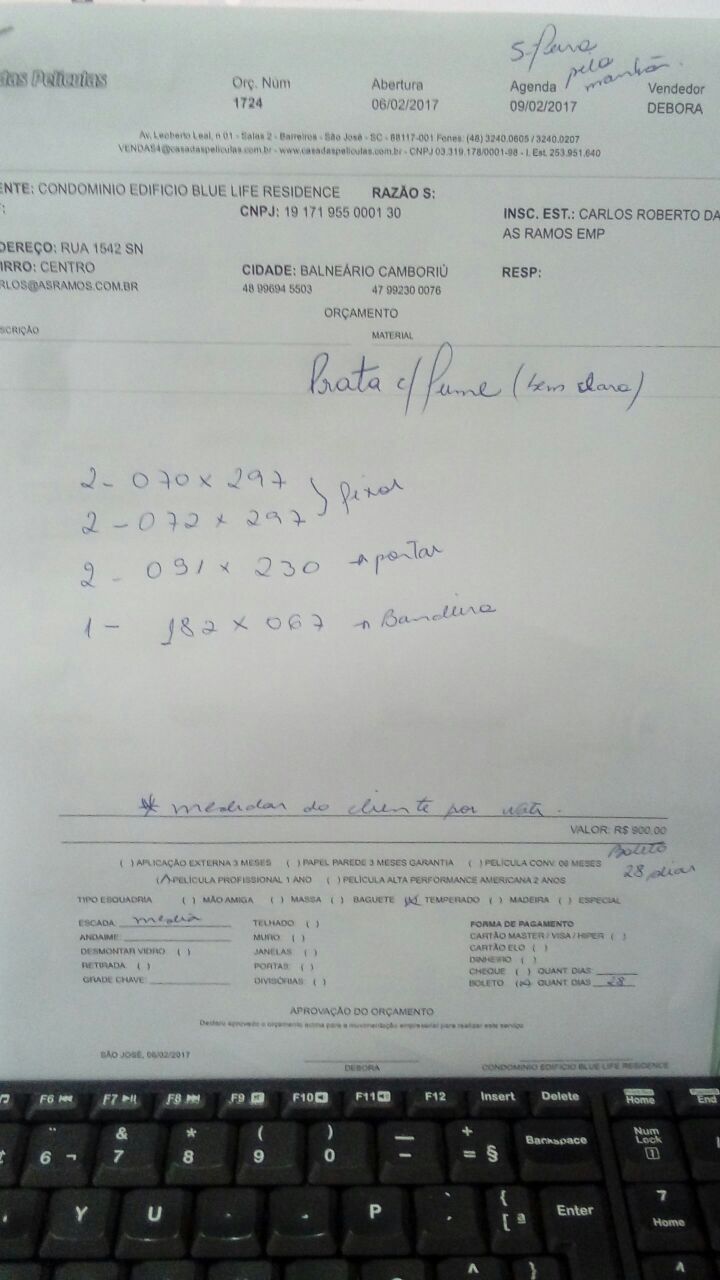 das Películas
Orç. Núm Abertura Agenda Vendedor
1724 06/02/2017 09/02/2017 DEBORA
5-feira pela manhã.
Av. Leoberto Leal, n 01 - Salas 2 - Barreiros - São José - SC - 88117-001 Fones: (48) 3240.0605 / 3240.0207
VENDAS4@casadaspeliculas.com.br - www.casadaspeliculas.com.br - CNPJ 03.319.178/0001-98 - I. Est. 253.951.640
ENTE: CONDOMINIO EDIFICIO BLUE LIFE RESIDENCE RAZÃO S:
CNPJ: 19 171 955 0001 30 INSC. EST.: CARLOS ROBERTO DA
AS RAMOS EMP
DEREÇO: RUA 1542 SN
IRRO: CENTRO CIDADE: BALNEÁRIO CAMBORIÚ RESP:
RLOS@ASRAMOS.COM.BR 48 99694 5503 47 99230 0076
ORÇAMENTO
SCRIÇÃO MATERIAL
Prata c/ Fume (bem claro)
2 - 070 x 297
2 - 072 x 297 } fixos
2 - 091 x 230 → portas
1 - 182 x 067 → Bandeira
* medidas do cliente por
VALOR: R$ 900,00
Boleto
28 dias
( ) APLICAÇÃO EXTERNA 3 MESES ( ) PAPEL PAREDE 3 MESES GARANTIA ( ) PELÍCULA CONV. 06 MESES
( ) PELÍCULA PROFISSIONAL 1 ANO ( ) PELÍCULA ALTA PERFORMANCE AMERICANA 2 ANOS
TIPO ESQUADRIA ( ) MÃO AMIGA ( ) MASSA ( ) BAGUETE (x) TEMPERADO ( ) MADEIRA ( ) ESPECIAL
ESCADA: media TELHADO ( ) FORMA DE PAGAMENTO
ANDAIME: MURO: ( ) CARTÃO MASTER / VISA / HIPER ( )
DESMONTAR VIDRO ( ) JANELAS ( ) CARTÃO ELO ( )
RETIRADA ( ) PORTAS: ( ) DINHEIRO ( )
GRADE CHAVE: DIVISÓRIAS: ( ) CHEQUE ( ) QUANT. DIAS
BOLETO (x) QUANT. DIAS 28
APROVAÇÃO DO ORÇAMENTO
Declaro aprovado o orçamento acima para a movimentação empresarial para realizar este serviço
SÃO JOSÉ, 06/02/2017
DEBORA CONDOMINIO EDIFICIO BLUE LIFE RESIDENCE
F6 F7 F8 F9 F10 F11 F12 Insert Delete Home End
6 ¬ & 7 * 8 ( 9 ) 0 — - + = § Backspace Num Lock
Y U P { [ ª Enter 7 Home